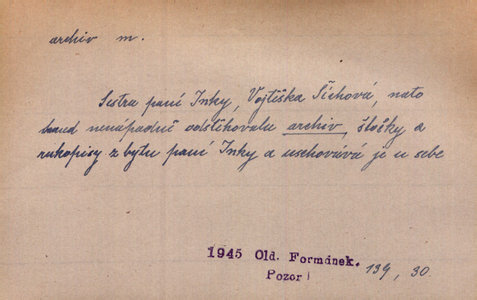 archiv m.
Sestra paní Inky, Vojtěška Číchová, nato
hned nenápadně odstěhovala archiv, štočky a
rukopisy z bytu paní Inky a uschovává je u sebe
1945 Old. Formánek.
Pozor! 139, 30.